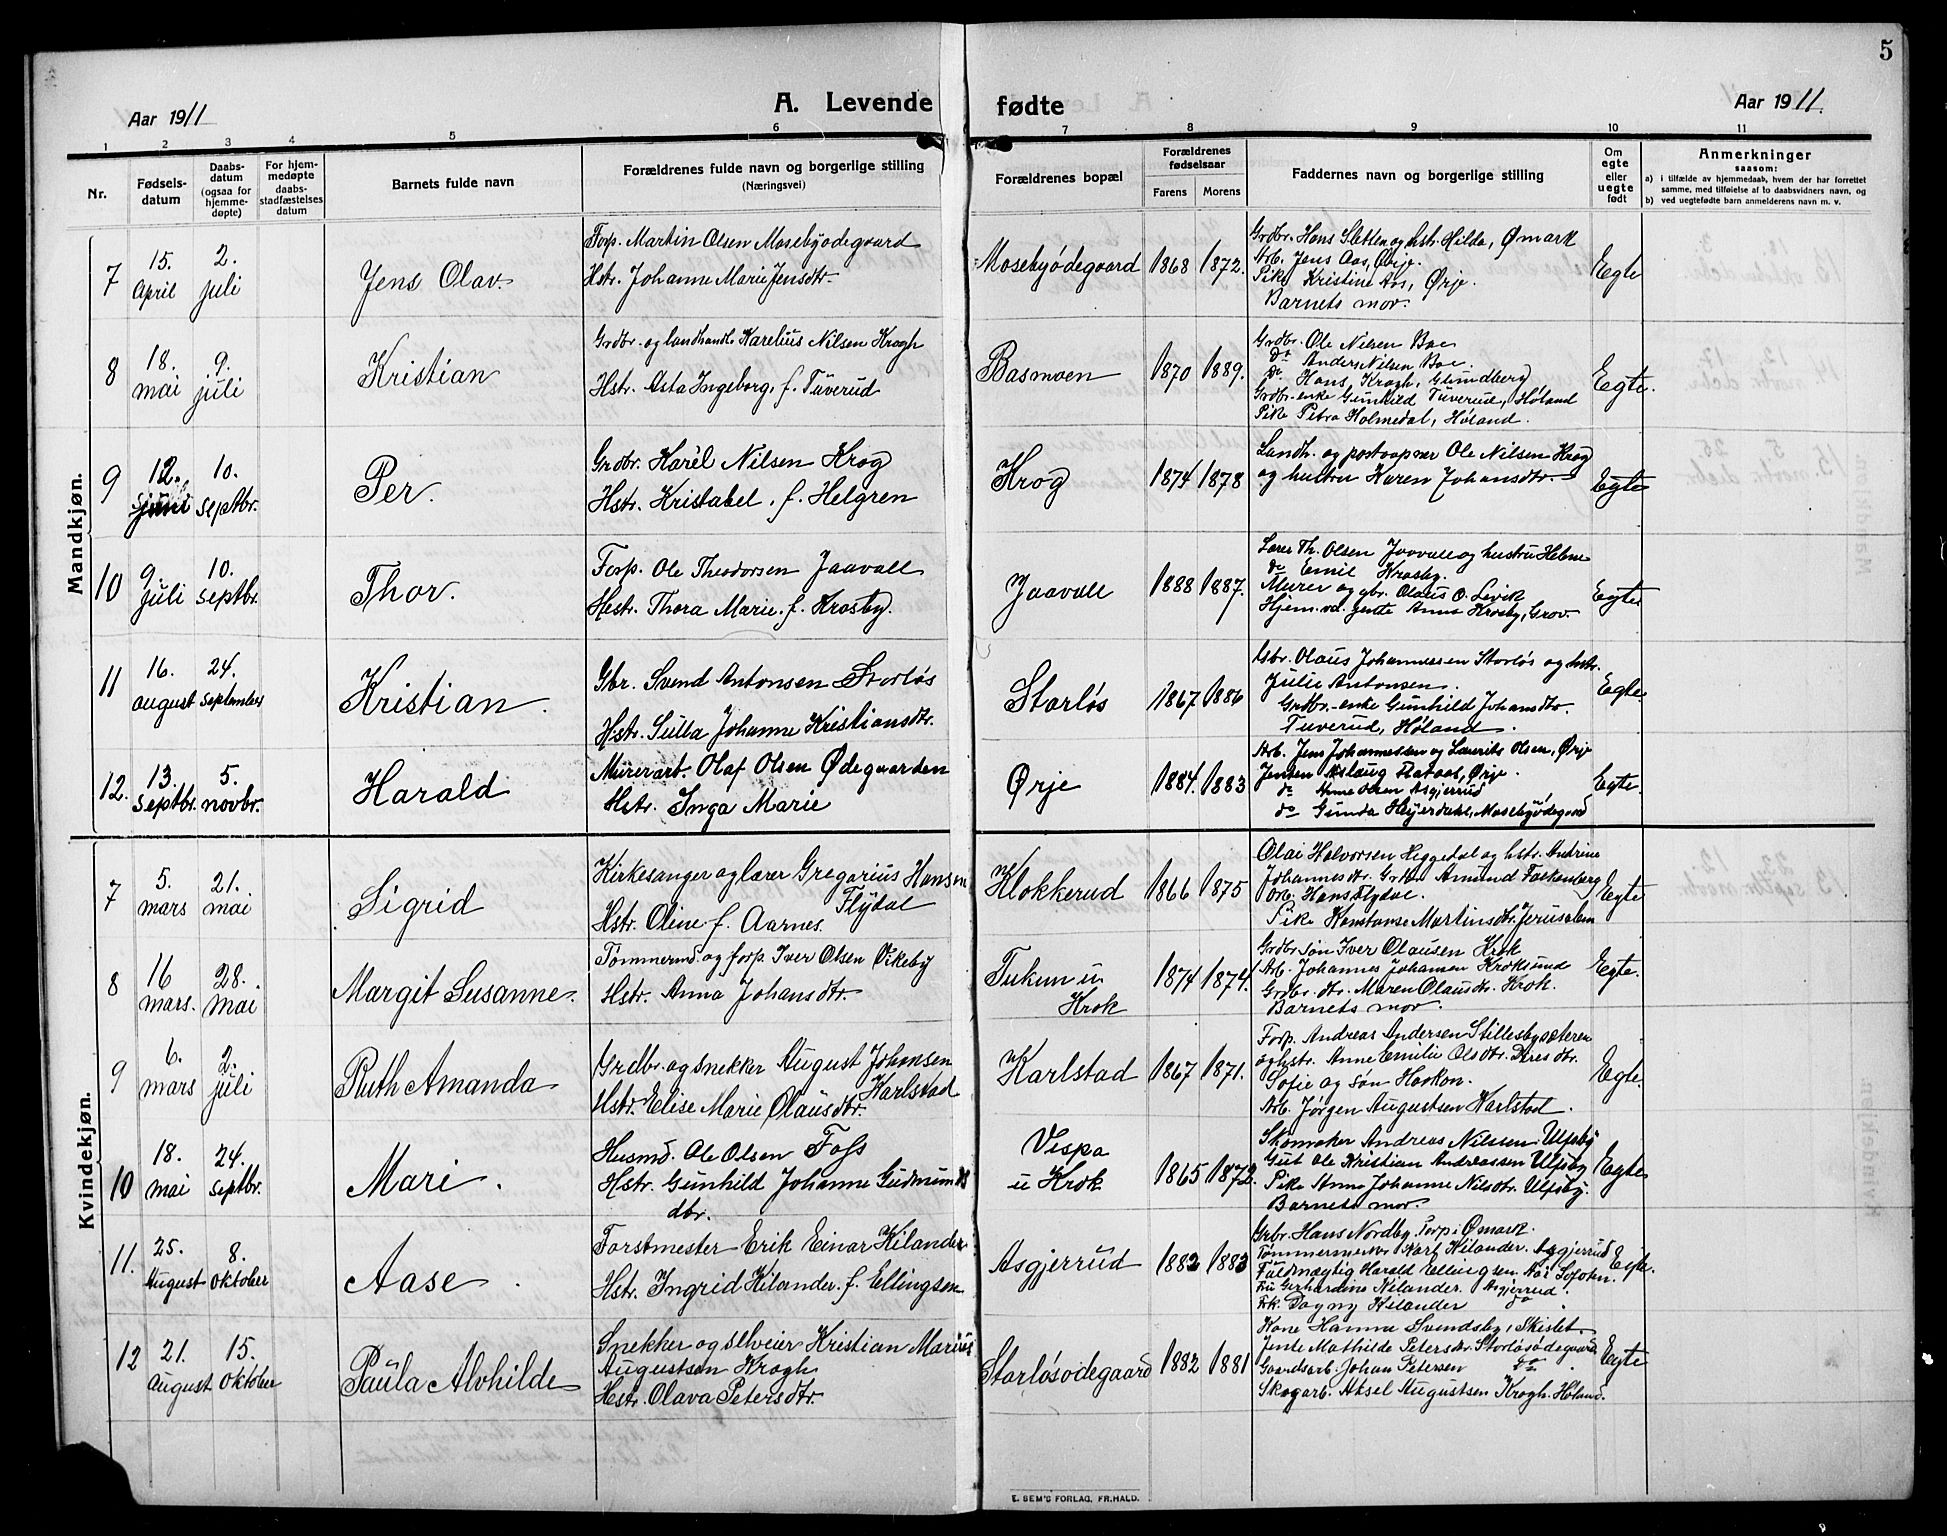 5
Aar 1911
A. Levende fødte
Aar 1911.
1 2 3 4 5 6 7 8 9 10 11
Nr.
Fødsels-
datum
Daabs-
datum
(ogsaa for
hjemme-
døpte)
For hjem-
medøpte
daabs-
stadfæstelses
datum
Barnets fulde navn
Forældrenes fulde navn og borgerlige stilling
(Næringsvei)
Forældrenes bopæl
Forældrenes
fødselsaar
Farens Morens
Faddernes navn og borgerlige stilling
Om
egte
eller
uegte
født
Anmerkninger
saasom:
a) i tilfælde av hjemmedaab, hvem der har forrettet
samme, med tilføielse af to daabsvidners navn, og
b) ved uegtefødte barn anmelderens navn m. v.
Mandkjøn.
7
15.
April
2.
juli
Jens Olav.
Forp. Martin Olsen Mosebyødegaard
Hstr. Johanne Marie Jensdtr.
Mosebyødegaard
1868 1872.
Grdbr. Hans Sletten og hstr. Hilda, Ømark
Arb. Jens Aas, Ørje.
Pike Kristine Aas, Ørje.
Barnets mor.
Egte
8
18.
mai
9.
juli
Kristian
Grdbr. og landhandl. Karelius Nilsen Krogh
Hstr. Asta Ingeborg, f. Tuverud
Basmoen
1870 1889.
Grdbr. Ole Nilsen Boe
do Anders Nilsen Boe.
do Hans Krogh, Glundberg
Grdbr. enke Gunhild Tuverud, Høland
Pike Petra Holmedal, Høland.
Egte.
9
12.
juni
10.
septbr.
Per.
Grdbr. Karèl Nilsen Krog
Hstr. Kristabel, f. Helgren
Krog
1874 1878
Landh. og postaapner Ole Nilsen Krog
og hustru Karen Johansdtr.
Egte
10
9
juli
10.
septbr.
Thor.
Forp. Ole Theodorsen Jaavall
Hstr. Thora Marie f. Krosby.
Jaavall
1888 1887.
Lærer Th. Olsen Jaavall og hustru Helene
do Emil Krosby.
Murer og gbr. Olaus O. Levik
Hjem.va. jente Anna Krosby, Grov.
Egte
11
16.
august
24.
september
Kristian.
Gbr. Svend Antonsen Storløs
Hstr. Sulla Johanne Kristiansdtr.
Storløs
1867 1886
Gbr. Olaus Johannessen Storløs og hstr.
Julie Antonsen.
Grdbr.-enke Gunhild Johansdtr.
Tuverud, Høland.
Egte
12.
13.
septbr.
5.
novbr.
Harald
Murerarb. Olaf Olsen Ødegaarden
Hstr. Inga Marie
Ørje
1884. 1883
Arb. Jens Johannessen og Laurits Olsen, Ørje
Jenten Aslaug Aas, Ørje.
do Anne Olsen Asgjerrud
do Gunda Heyerdahl, Mosebyødegaard
Egte.
Kvindekjøn.
7
5.
mars
21.
mai
Sigrid
Kirkesanger og lærer Gregarius Hansen
Flydal
Hstr. Oline f. Aarnes.
Klokkerud
1866 1875
Olai Halvorsen Heggedal og hstr. Andrine
Johannesdtr. Grdbr. Amund Falkenberg
Arb. Hans Flydal.
Pike Konstanse Martinsdtr. Jerusalem
Egte
8
16
mars.
28.
mai
Margit Susanne.
Tømmermd. og forp. Iver Olsen Vikeby
Hstr. Anna Johansdtr.
Tukun u.
Krok
1874 1874.
Grdbr. søn Iver Olausen Krok
Arb. Johannes Johansen Kroksund
Grdbr. dtr. Maren Olausdtr. Krok.
Barnets mor.
Egte.
9
6.
mars
2.
juli
Ruth Amanda
Grdbr. og snekker August Johansen
Karlstad
Hstr. Elise Marie Olausdtr.
Karlstad
1867 1871.
Forp. Andreas Andersen Stillesbysæteren
og hstr. Anne Emilie Olsdtr. Deres dtr.
Sofie og søn Haakon.
Arb. Jørgen Augustsen Karlstad.
Egte.
10
18.
mai
24.
septbr.
Mari.
Husmd. Ole Olsen Foss
Hstr. Gunhild Johanne Gudmunds
dtr.
Vespa
u Krok
1865 1872.
Skomaker Andreas Nilssen Ulfsby
Gut Ole Kristian Andreassen Ulfsby
Pike Anna Johanne Nilsdtr. Ulfsby.
Barnets mor.
Egte
11.
25.
August
8.
oktober
Aase.
Forstmester Erik Einar Kilander
Hstr. Ingrid Kilander. f. Ellingsen
Asgjerrud
1882 1883
Grbr. Hans Nordby, Torp i Ømark.
Tømmermester Karl Kilander. Asgjerrud
Fuldmægtig Harald Ellingsen.
Fru Gerhardine Kilander. Asgjerrud.
Frk. Dagny Kilander do.
Egte.
12
21.
august
15.
oktober
Paula Alvhilde
Snekker og selveier Kristian Marius
Augustsen Krogh
Hstr. Olava Petersdtr.
Storløsødegaard
1882 1881
Kone Hanna Svendsby, Skislet.
Jente Mathilde Petersdtr. Storløsødegaard
Gaardsarb. Johan Petersen do.
Skogarb. Aksel Augustsen Krogh. Høland.
Egte
E. SEM'S FORLAG, FR.HALD.